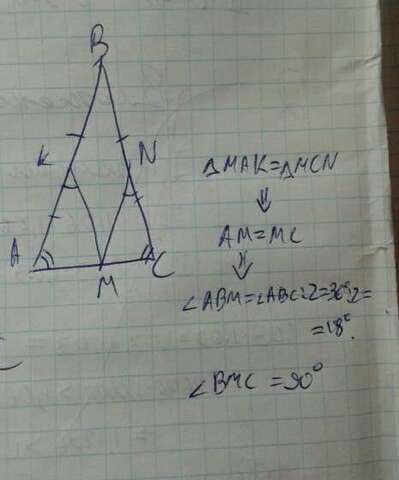 B
K
N
A
M
C
△MAK=△MCN
⇓
AM=MC
⇓
∠ABM=∠ABC:2=36°:2=
=18°.
∠BMC =90°